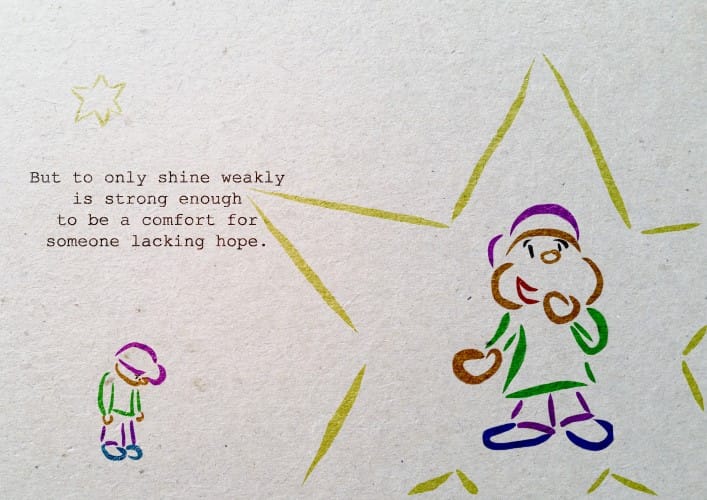 But to only shine weakly
is strong enough
to be a comfort for
someone lacking hope.